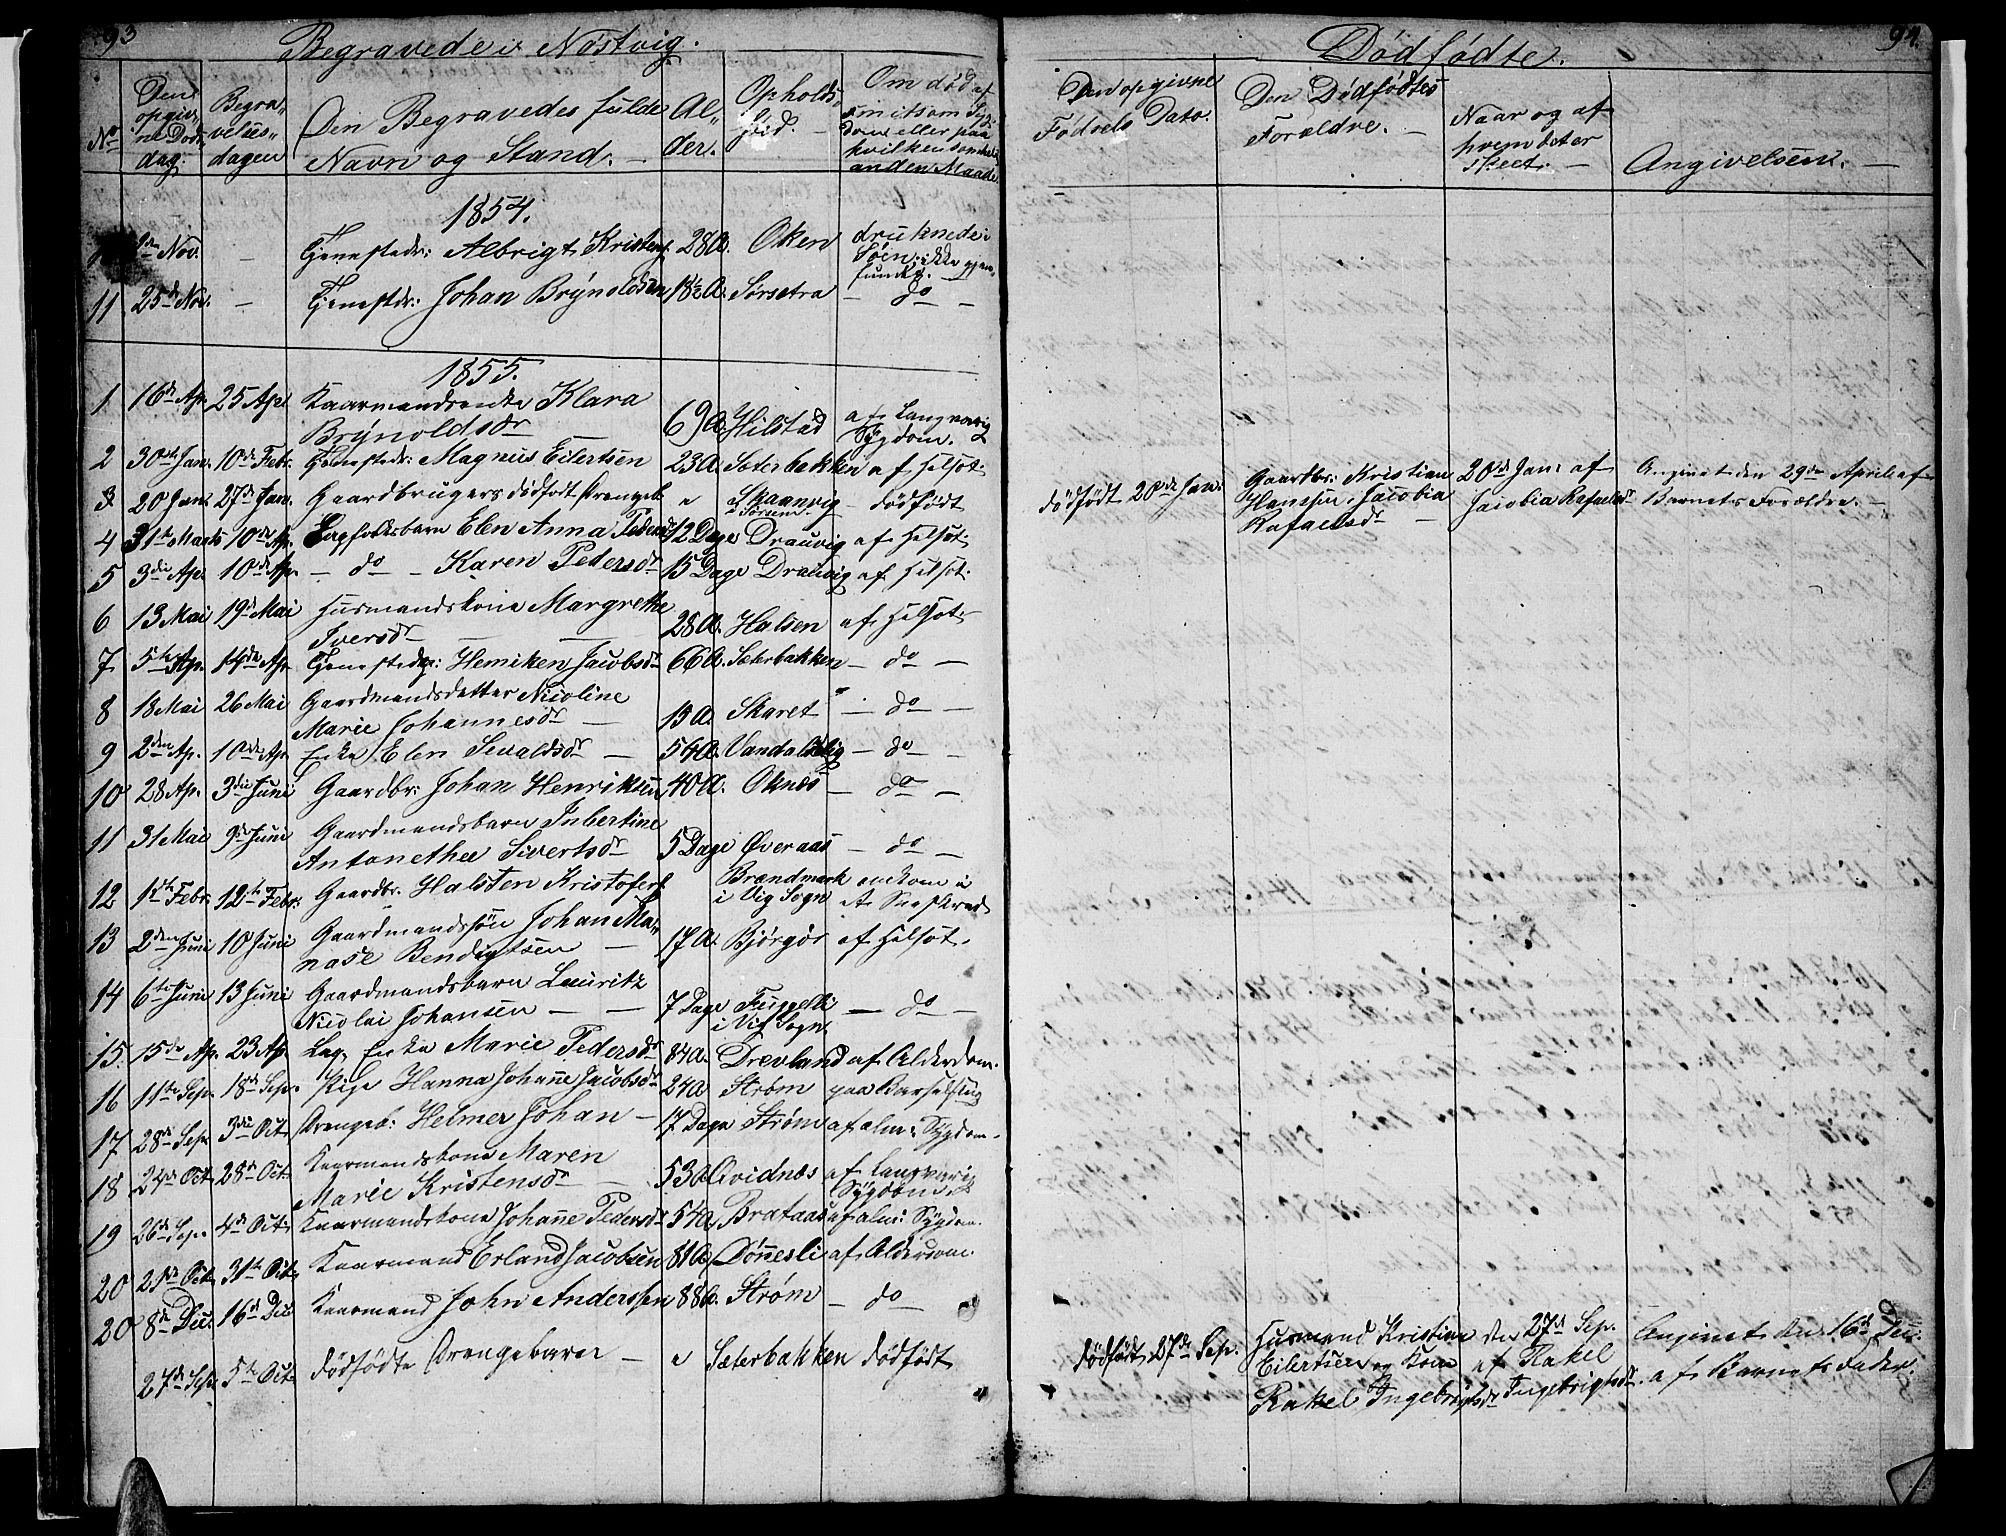 93
Begravede i Næstvig.
No
Den opgivne Dødsdag.
Begravelsesdagen
Den Begravedes fulde Navn og Stand. —
Alder.
Opholdssted. —
Om død af smitsom Sygdom eller paa hvilkensomhelst anden Maade
1854.
Nov. — Tjenestedr: Albrigt Kristens. 28 A. Oken druknede i Søen: ikke gjenfunden. —
11 25de Nov. — Tjenestdr: Johan Brynoldsen 18½ A. Sørsetra — do —
1855.
1 16de Ap. 25 Apl Kaarmandsenke Klara
Brynoldsdr — 69 A. Hilstad af Langvarig Sygdom.
2 30te Jan. 10de Febr. Tjenestedr: Magnus Eilertsen 23 A. Sæterbakken af Helsot.
3 20 Jan. 27de Jan. Gaardbrugers dødfødt Drengeb. " Skaanvig dødfødt
4 31te Marts 10de Ap. Lapfolksbarn Elen Anna Pedersd. 12 Dage Drauvig af Helsot.
5 3die Ap. 10de Ap. — do — Karen Pedersdr 15 Dage Drauvig af Helsot.
6 13 Mai 19de Mai Husmandskone Margrethe
Iversdr — 28 A. Halsen af Helsot
7 5te Ap. 14de Ap. Tjenestedr: Hemiken Jacobsdr 66 A. Sæterbakken — do —
8 18 Mai 26 Mai Gaardmandsdatter Nicoline
Marie Johannesdr — 13 A. Skaret — do —
9 2den Ap. 10de Ap. Enke Elen Sivaldsdr — 54 A. — do —
10 28 Ap. 3die Juni Gaardbr: Johan Henriksen 40 A. Oknes — do —
11 31 Mai 9de Juni Gaardmandsbarn Inbertine
Antonethe Sivertsdr 5 Dage Øveraas — do —
12 1te Febr. 12te Febr. Gaardbr. Halsten Kristofers. Brændmark i Vig Sogn omkom i et Sneskred
13 2den Juni 10 Juni Gaardmandssøn Johan Manase Bendigtsen — 17 A. Bjørgos af Helsot.
14 6te Juni 13 Juni Gaardmandsbarn Lauritz
Nicolai Johansen — — 7 Dage i Vig Sogn. — do —
15. 15de Ap. 23 Ap. Enke Marie Pedersdr 84 A. Drevland af Alderdom.
16 11te Sep. 18de Sep. Pige Hanna Johanne Jacobsdr 24 A. Strøm paa Barselseng
17 28de Sep. 3die Oct. Drengeb: Helmer Johan — 17 Dage Strøm af alm: Sygdom.
18 24de Oct. 28de Oct. Kaarmandskone Maren
Marie Kristensdr — 53 A. Qvidnes af langvarig Sygdom.
19 26de Sep. 4de Oct. Kaarmandskone Johanne Pedersdr 54 A. Brataas af alm: Sygdom.
20 21de Oct. 31te Oct. Kaarmand Erland Jacobsen 81 A. Dønesli af Alderdom.
20 8de Dec. 16de Dec. Kaarmand John Andersen 88 A. Strøm — do —
27de Sep. 5te Oct. dødfødte Drengebarn — " Sæterbakken dødfødt
94.
Dødfødte.
Den opgivne Fødsels Dato.
Den Dødfødtes Forældre. —
Naar og af hvem det er skeet. —
Angivelsen. —
dødfødt 20de Jan: Gaardbr. Kristian Hansen, Jacobia Rafaelsdr — 20de Jan: af Jacobia Rafaelsdr Angivet den 29de April af Barnets Forældre. —
dødfødt 27de Sep. Husmand Kristian Eilertsen og Kone Rakel Ingebrigtsdr den 27de Sep. af Rakel Ingebrigtsdr. Angivet den 16de Dec: af Barnets Fader.